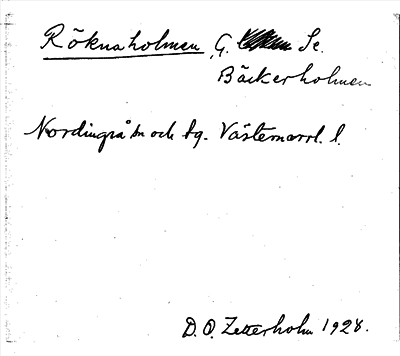 Röknaholmen, G. Se
Bäckerholmen
Nordingrå sn och tg. Västernorrl. l.
D. O. Zetterholm 1928.